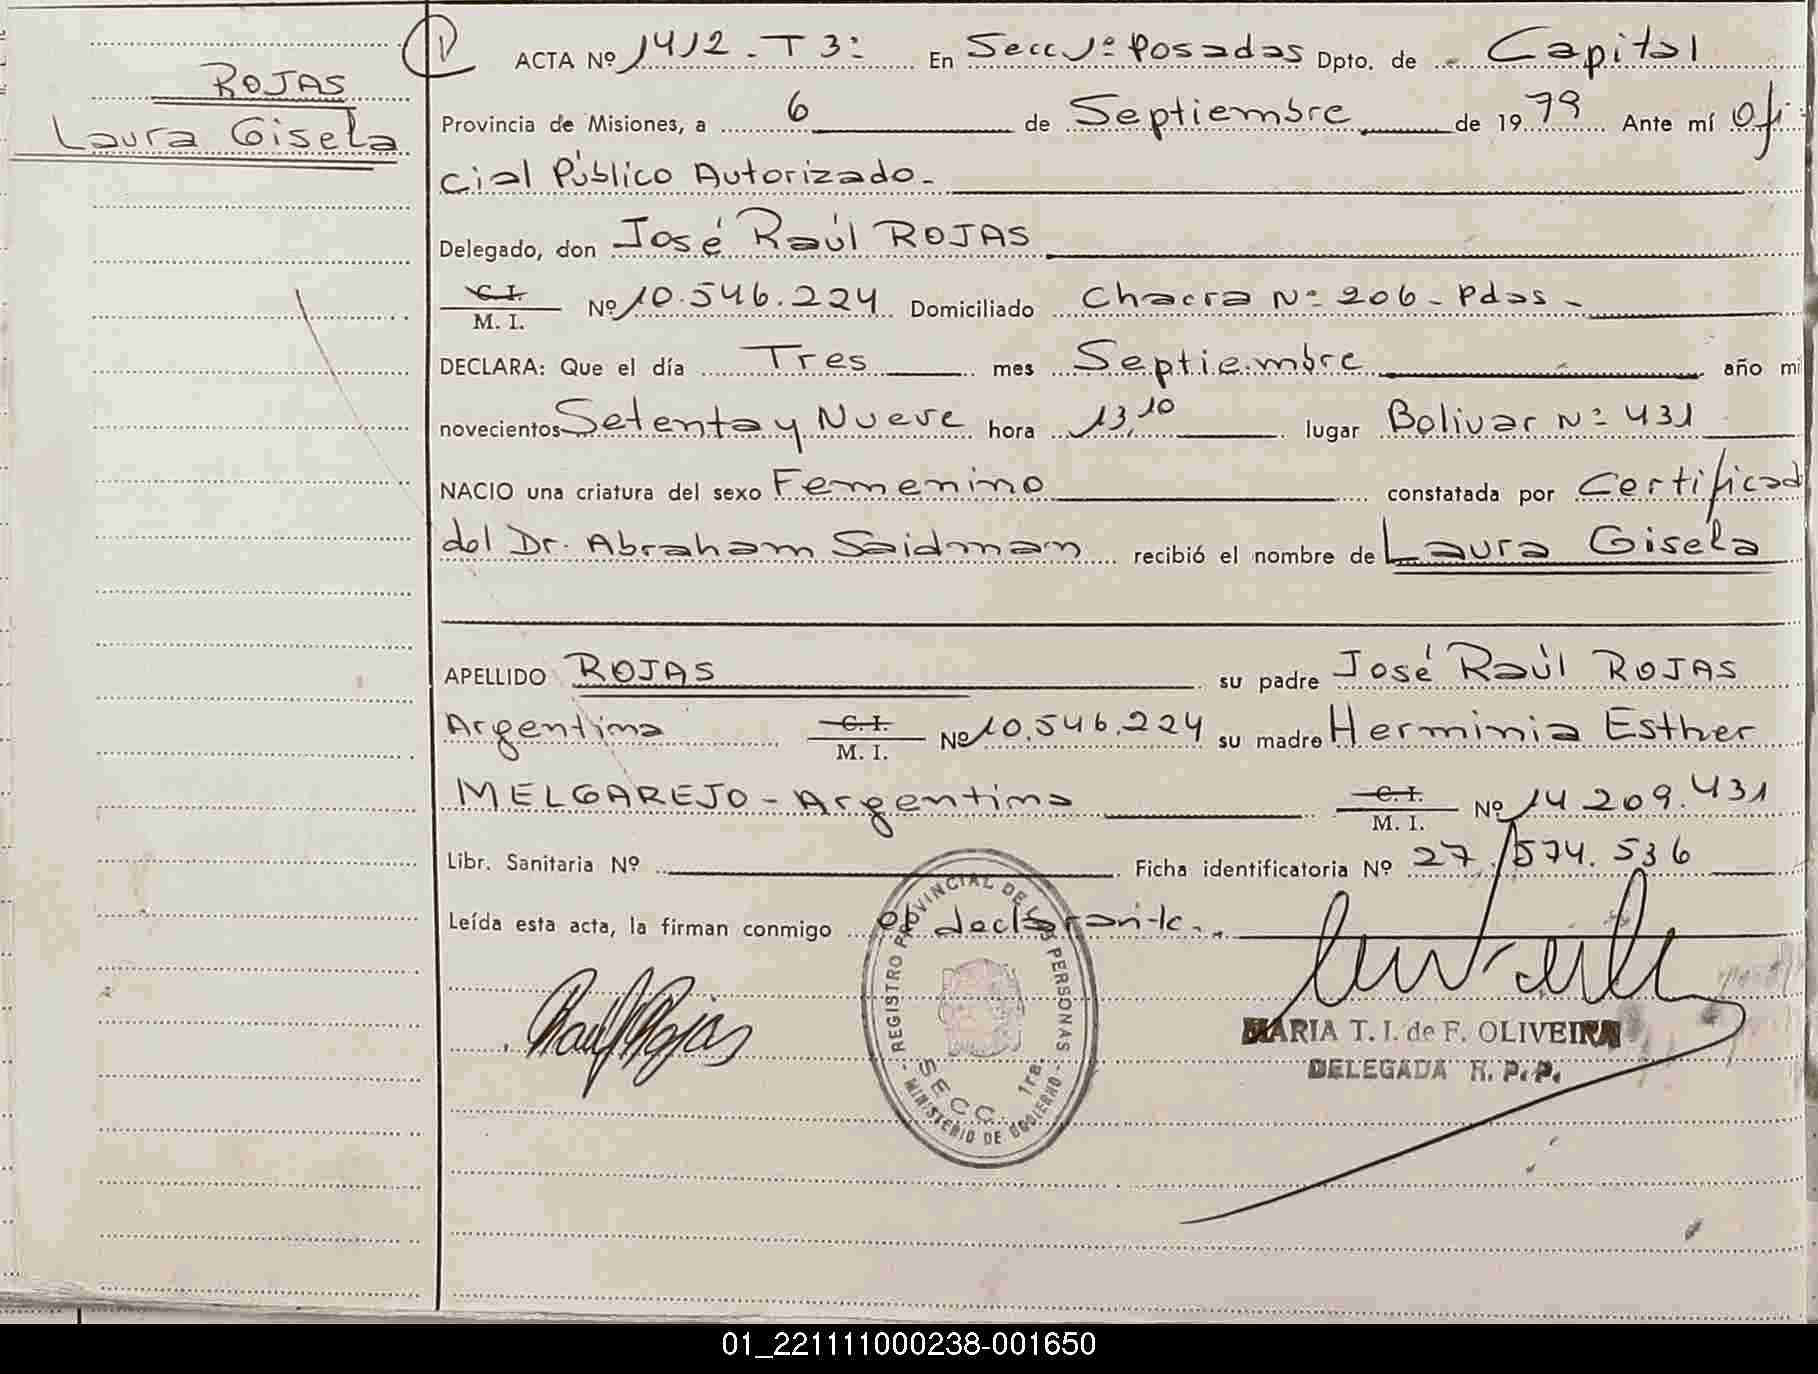 ROJAS
Laura Gisela
ACTA Nº 1412 - T 3º En Secc 1º Posadas Dpto. de Capital
Provincia de Misiones, a 6 de Septiembre de 1979 Ante mí Ofi
cial Público Autorizado -
Delegado, don José Raúl ROJAS
C. I.
M. I. Nº 10.546.224 Domiciliado Chacra Nº 206 - Pdas -
DECLARA: Que el día Tres mes Septiembre año mi
novecientos Setenta y Nueve hora 13,10 lugar Bolivar Nº 431
NACIO una criatura del sexo Femenino constatada por Certificad
del Dr. Abraham Saidman recibió el nombre de Laura Gisela
APELLIDO ROJAS su padre José Raúl ROJAS
Argentina C. I.
M. I. Nº 10.546.224 su madre Herminia Esther
MELGAREJO - Argentina C. I.
M. I. Nº 14.209.431
Libr. Sanitaria Nº Ficha identificatoria Nº 27.574.536
Leída esta acta, la firman conmigo el declarante..
Raul Rojas
REGISTRO PROVINCIAL DE LAS PERSONAS
SECC. 1ra.
- MINISTERIO DE GOBIERNO -
MARIA T. I. de F. OLIVEIRA
DELEGADA R. P. P.
01_221111000238-001650